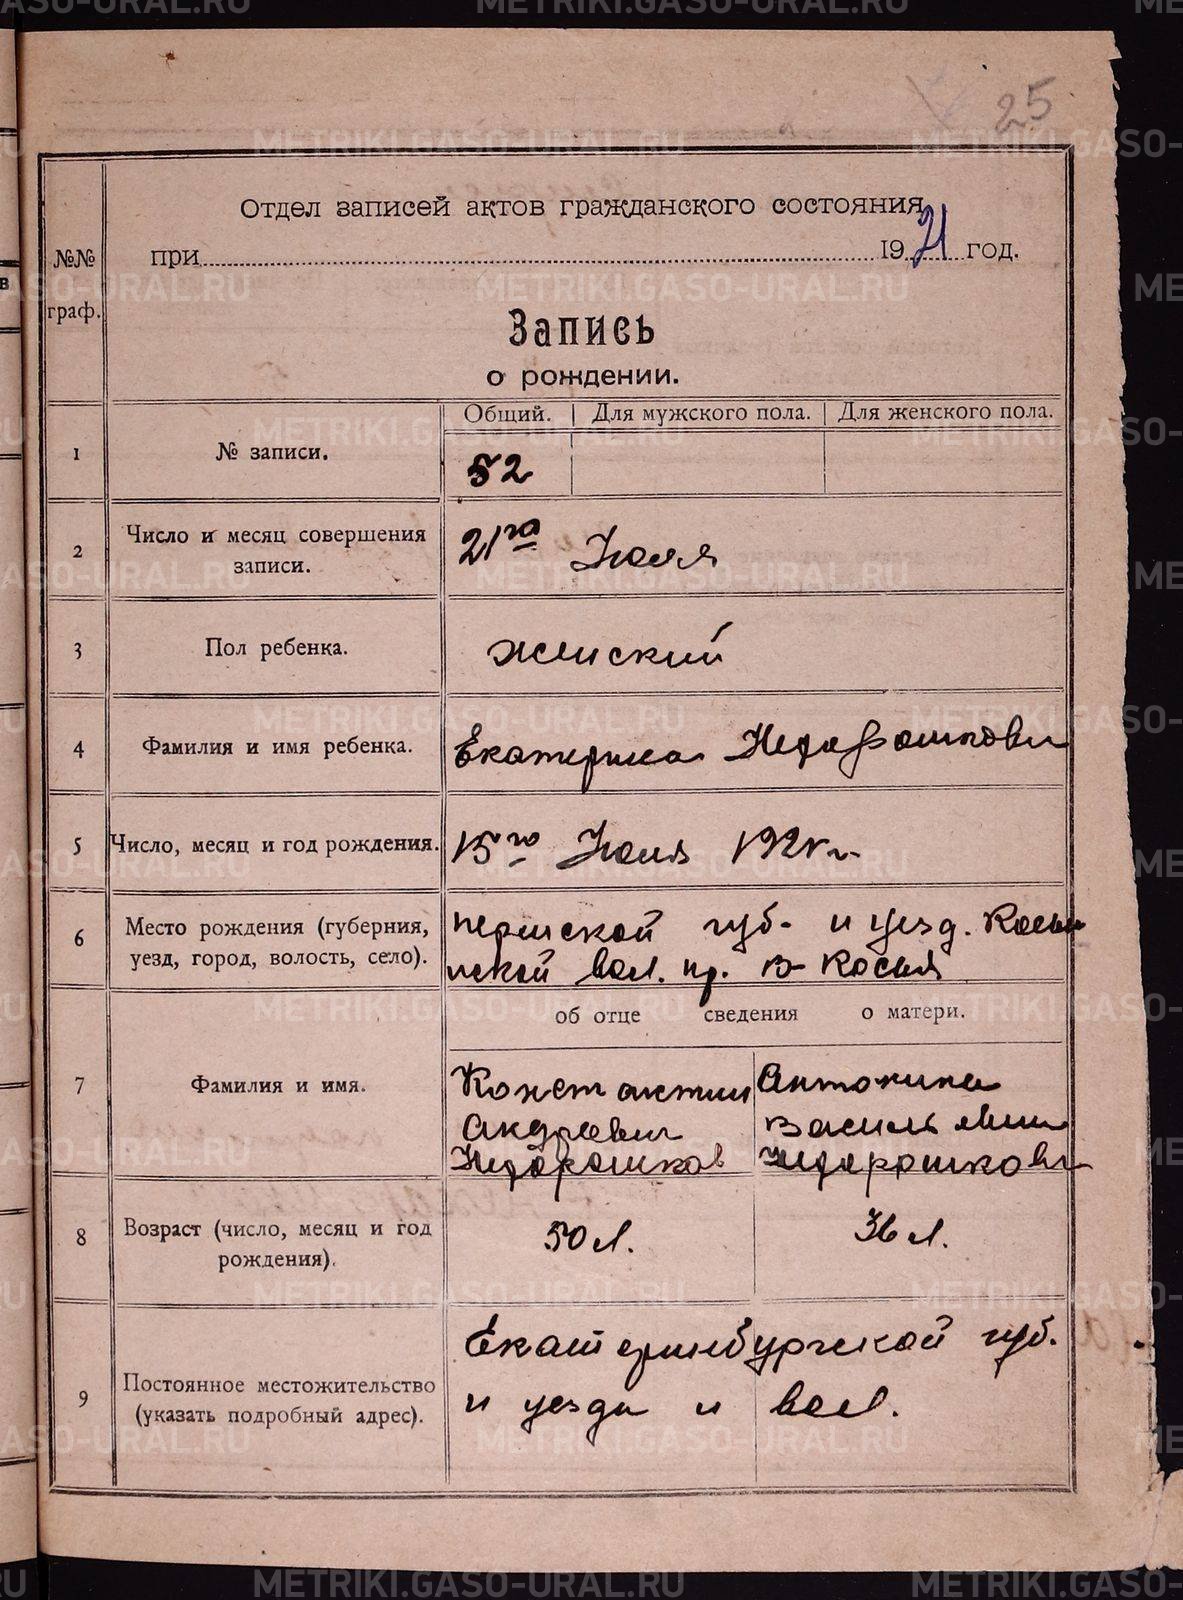 25
Отдел записей актов гражданского состояния
при 1921 год.
№№ граф.
Запись
о рождении.
Общий. Для мужского пола. Для женского пола.
1 № записи. 52
2 Число и месяц совершения
записи. 21го Июля
3 Пол ребенка. женский
4 Фамилия и имя ребенка. Екатерина
5 Число, месяц и год рождения. 15го Июля 1921 г.
6 Место рождения (губерния, пермской губ. и уезд. Косьи
уезд, город, волость, село). нской вол. пр. в Косья
об отце сведения о матери.
7 Фамилия и имя. Константин Антонина
Андреевич Василь евна
8 Возраст (число, месяц и год 50 л. 36 л.
рождения).
Екатеринбургской губ.
9 Постоянное местожительство и уезда и вол.
(указать подробный адрес).
METRIKI.GASO-URAL.RU